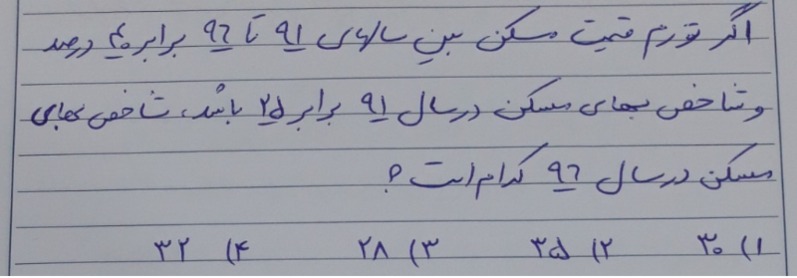 اگر تورم قیمت مسکن بین سالهای ۹۱ تا ۹۶ برابر ۴۰ درصد
و شاخص بهای مسکن در سال ۹۱ برابر ۲۵ باشد، شاخص بهای
مسکن در سال ۹۶ کدام است؟
۱) ۳۰ ۲) ۳۵ ۳) ۲۸ ۴) ۳۲